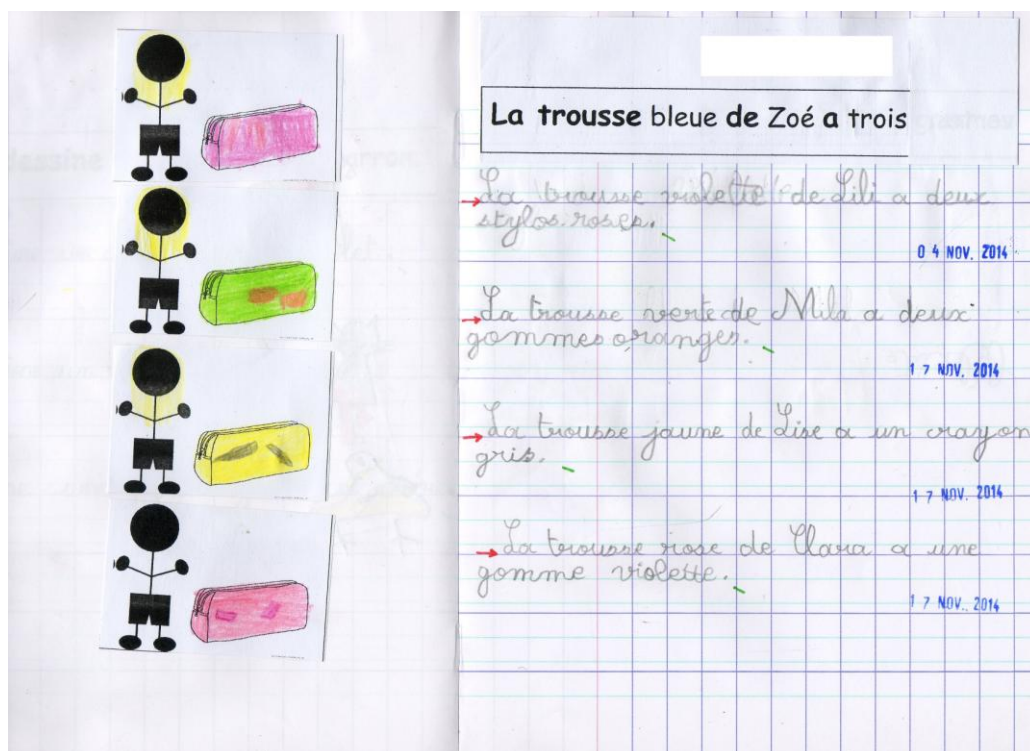 La trousse bleue de Zoé a trois
La trousse violette de Lili a deux
stylos roses.
0 4 NOV. 2014
La trousse verte de Mila a deux
gommes oranges.
1 7 NOV. 2014
La trousse jaune de Lise a un crayon
gris.
1 7 NOV. 2014
La trousse rose de Clara a une
gomme violette.
1 7 NOV. 2014